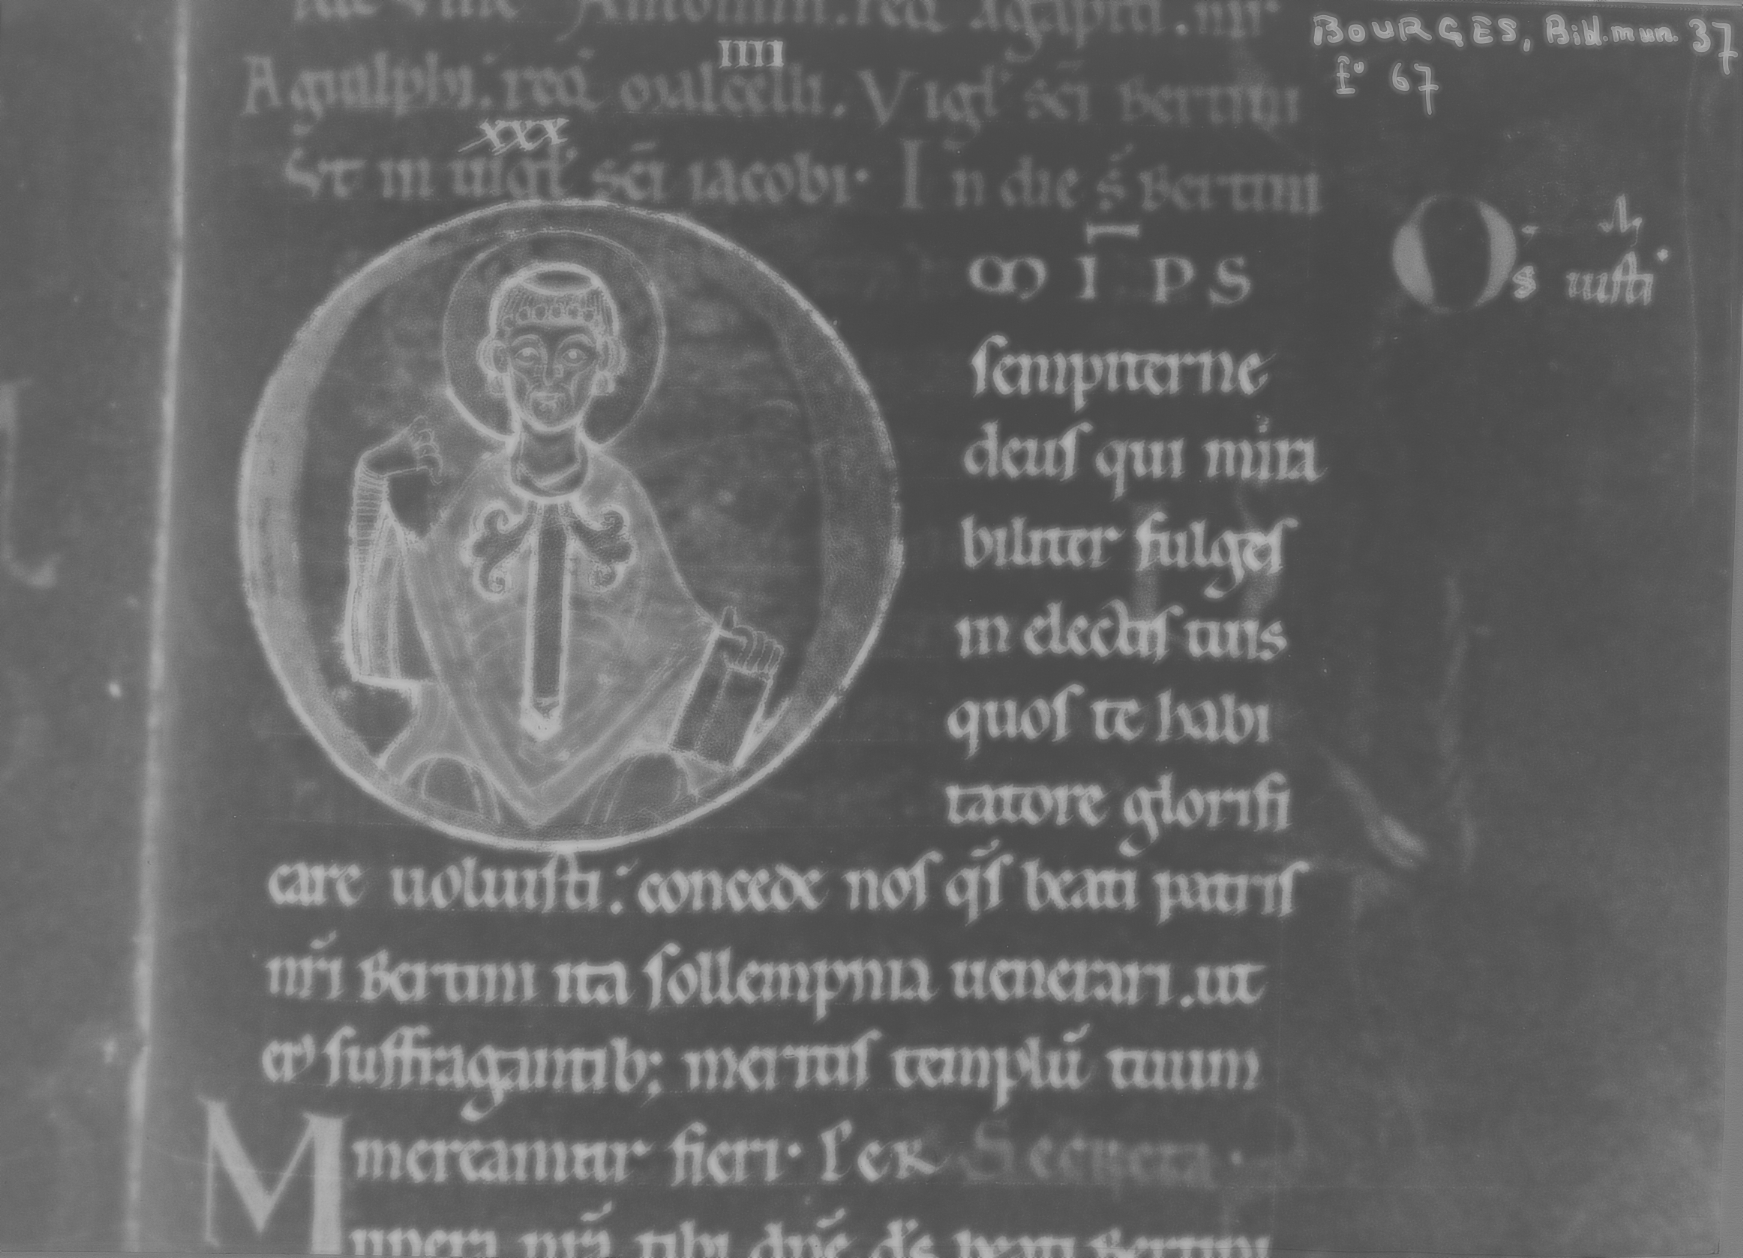 BOURGES, Bibl. mun. 37
f° 67
Antonini. req̄ agapiti. iiii
Agiulphi. req̄ oculcelli. Vigl̄ sc̄i Bertini
IIII
xxx
St̄ in uigl̄ sc̄i iacobi. In die s̄ Bertini
O M̄ I P S
sempiterne
deus qui mira
biliter fulges
in electis tuis
quos te habi
tatore glorifi
care uoluisti. concede nos q̄s beati patris
nr̄i Bertini ita sollempnia uenerari. ut
ei' suffragantib; meritis templū tuum
mereamur fieri. Per Secreta.
Munera nr̄a tibi dn̄e d̄s beati Bertini
Os iusti